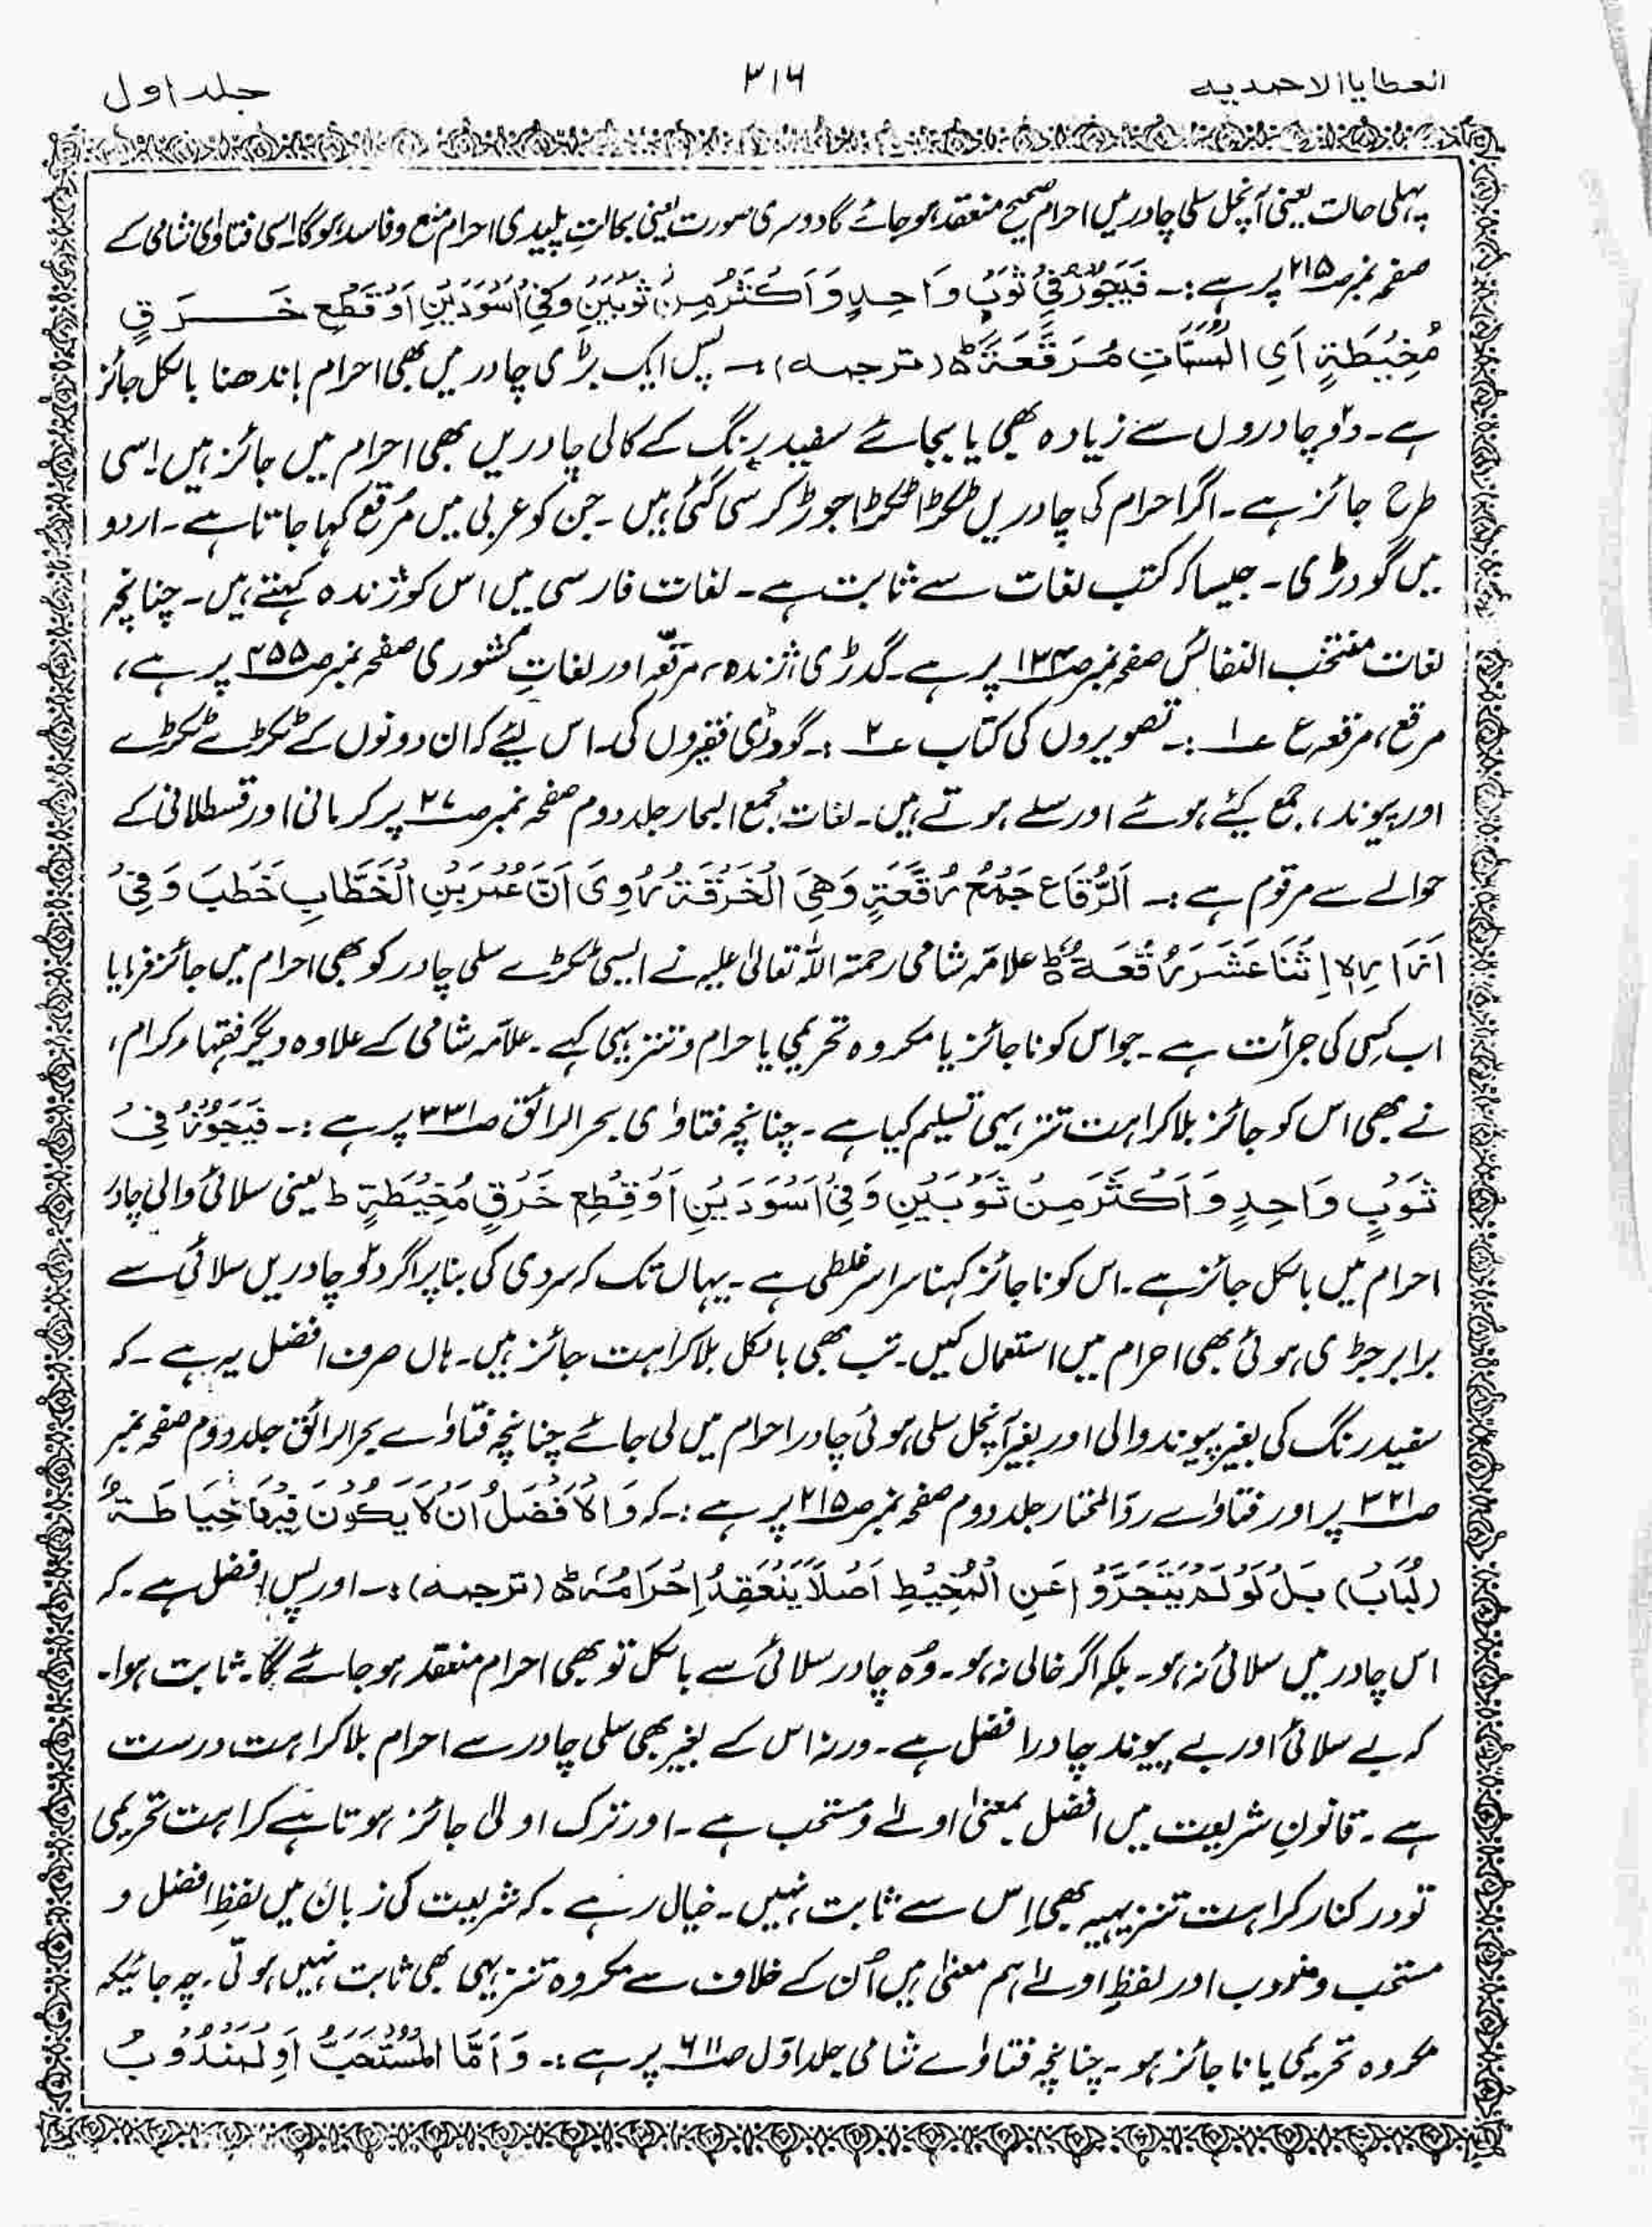 العطایا الاحمدیہ
۳۱۶
جلد اول
پہلی حالت یعنی آنچل سلی چادر میں احرام صحیح منعقد ہو جائے گا دوسری صورت یعنی بحالتِ پلیدی احرام منع و فاسد ہو گا اسی فتاوٰی شامی کے
صفحہ نمبر صـ۲۱۵ پر ہے :۔ فَيَجُوْزُ فِيْ ثَوْبٍ وَاحِدٍ وَ اَكْثَرَ مِنْ ثَوْبَيْنِ وَ فِيْ اَسْوَدَيْنِ اَوْ قَطْعِ خَرَقٍ
مُخِيْطَةٍ اَيِ مُرَقَّعَةً ط (ترجمہ) :۔ پس ایک بڑی چادر میں بھی احرام باندھنا بالکل جائز
ہے ۔ دو چادروں سے زیادہ بھی یا بجائے سفید رنگ کے کالی چادریں بھی احرام میں جائز ہیں اسی
طرح جائز ہے ۔ اگر احرام کی چادریں ٹکڑا ٹکڑا جوڑ کر سی گئی ہیں ۔ جن کو عربی میں مُرقع کہا جاتا ہے ۔ اردو
میں گودڑی ۔ جیسا کہ کتب لغات سے ثابت ہے ۔ لغات فارسی میں اس کو ژندہ کہتے ہیں ۔ چنانچہ
لغات منتخب النفائس صفحہ نمبر صـ۱۳۴ پر ہے ۔ گدڑی ، ژندہ ، مرقعہ اور لغاتِ کشوری صفحہ نمبر صـ۴۵۵ پر ہے ،
مرقع ، مرقعہ ع عـ۱ :۔ تصویروں کی کتاب عـ۲ :۔ گودڑی فقیروں کی ۔ اس لیئے کہ ان دونوں کے ٹکڑے ٹکڑے
اور پیوند ، جمع کیئے ہوئے اور سلے ہوتے ہیں ۔ لغات مجمع البحار جلد دوم صفحہ نمبر صـ۲۷ پر کرمانی اور قسطلانی کے
حوالے سے مرقوم ہے :۔ اَلرُّقَاع جَمْعُ رُقَّعَةٍ وَهِيَ الْخَرْقَةُ رُوِيَ اَنَّ عُمَرَ بْنِ الْخَطَّابِ خَطَبَ وَ فِيْ
اَزَارِہٖ اِثْنَا عَشَرَ رُقْعَةً ط علامہ شامی رحمتہ اللہ تعالیٰ علیہ نے ایسی ٹکڑے سلی چادر کو بھی احرام میں جائز فرمایا
اب کسی کی جرأت ہے ۔ جو اس کو ناجائز یا مکروہ تحریمی یا حرام و تنزیہی کہے ۔ علامہ شامی کے علاوہ دیگر فقہاء کرام ،
نے بھی اس کو جائز بلا کراہت تنزیہی تسلیم کیا ہے ۔ چنانچہ فتاوٰی بحر الرائق صـ۳۳۱ پر ہے :۔ فَيَجُوْزُ فِيْ
ثَوْبٍ وَاحِدٍ وَ اَكْثَرَ مِنْ ثَوْبَيْنِ وَ فِيْ اَسْوَدَيْنِ اَوْ قِطْعِ خَرْقٍ مُخِيْطَةٍ ط یعنی سلائی والی چادر
احرام میں بالکل جائز ہے ۔ اس کو ناجائز کہنا سراسر غلطی ہے ۔ یہاں تک کہ سردی کی بنا پر اگر دو چادریں سلائی سے
برابر جڑی ہوئی بھی احرام میں استعمال کیں ۔ تب بھی بالکل بلا کراہت جائز ہیں ۔ ہاں صرف افضل یہ ہے ۔ کہ
سفید رنگ کی بغیر پیوند والی اور بغیر آنچل سلی ہوئی چادر احرام میں لی جائے چنانچہ فتاوٰے بحر الرائق جلد دوم صفحہ نمبر
صـ۳۲۱ پر اور فتاوٰے ردّ المختار جلد دوم صفحہ نمبر صـ۲۱۵ پر ہے :۔ کہ وَ الْاَفْضَلُ اَنْ لَا يَكُوْنَ فِيْهَا خِيَاطَةٌ
(لُبَابُ) بَلْ لَوْ لَمْ يَتَجَرَّدْ عَنِ الْمُخِيْطِ اَصْلاً يَنْعَقِدُ اِحْرَامُهُ ط (ترجمہ) :۔ اور پس افضل ہے ۔ کہ
اس چادر میں سلائی نہ ہو ۔ بلکہ اگر خالی نہ ہو ۔ وُہ چادر سلائی سے بالکل تو بھی احرام منعقد ہو جائے گا ۔ ثابت ہوا ۔
کہ بے سلائی اور بے پیوند چادر افضل ہے ۔ ورنہ اس کے بغیر بھی سلی چادر سے احرام بلا کراہت درست
ہے ۔ قانونِ شریعت میں افضل بمعنیٰ اولےٰ و مستحب ہے ۔ اور ترک اولیٰ جائز ہوتا ہے کراہت تحریمی
تو درکنار کراہت تنزیہیہ بھی اِس سے ثابت نہیں ۔ خیال رہے ۔ کہ شریعت کی زبان میں لفظِ افضل و
مستحب و مندوب اور لفظِ اولےٰ ہم معنیٰ ہیں اُن کے خلاف سے مکروہ تنزیہی بھی ثابت نہیں ہوتی ۔ چہ جائیکہ
مکروہ تحریمی یا ناجائز ہو ۔ چنانچہ فتاوٰے شامی جلد اوّل صـ۶۱۱ پر ہے :۔ وَ اَمَّا الْمُسْتَحَبُّ اَوِ لْمَنْدُوْبُ